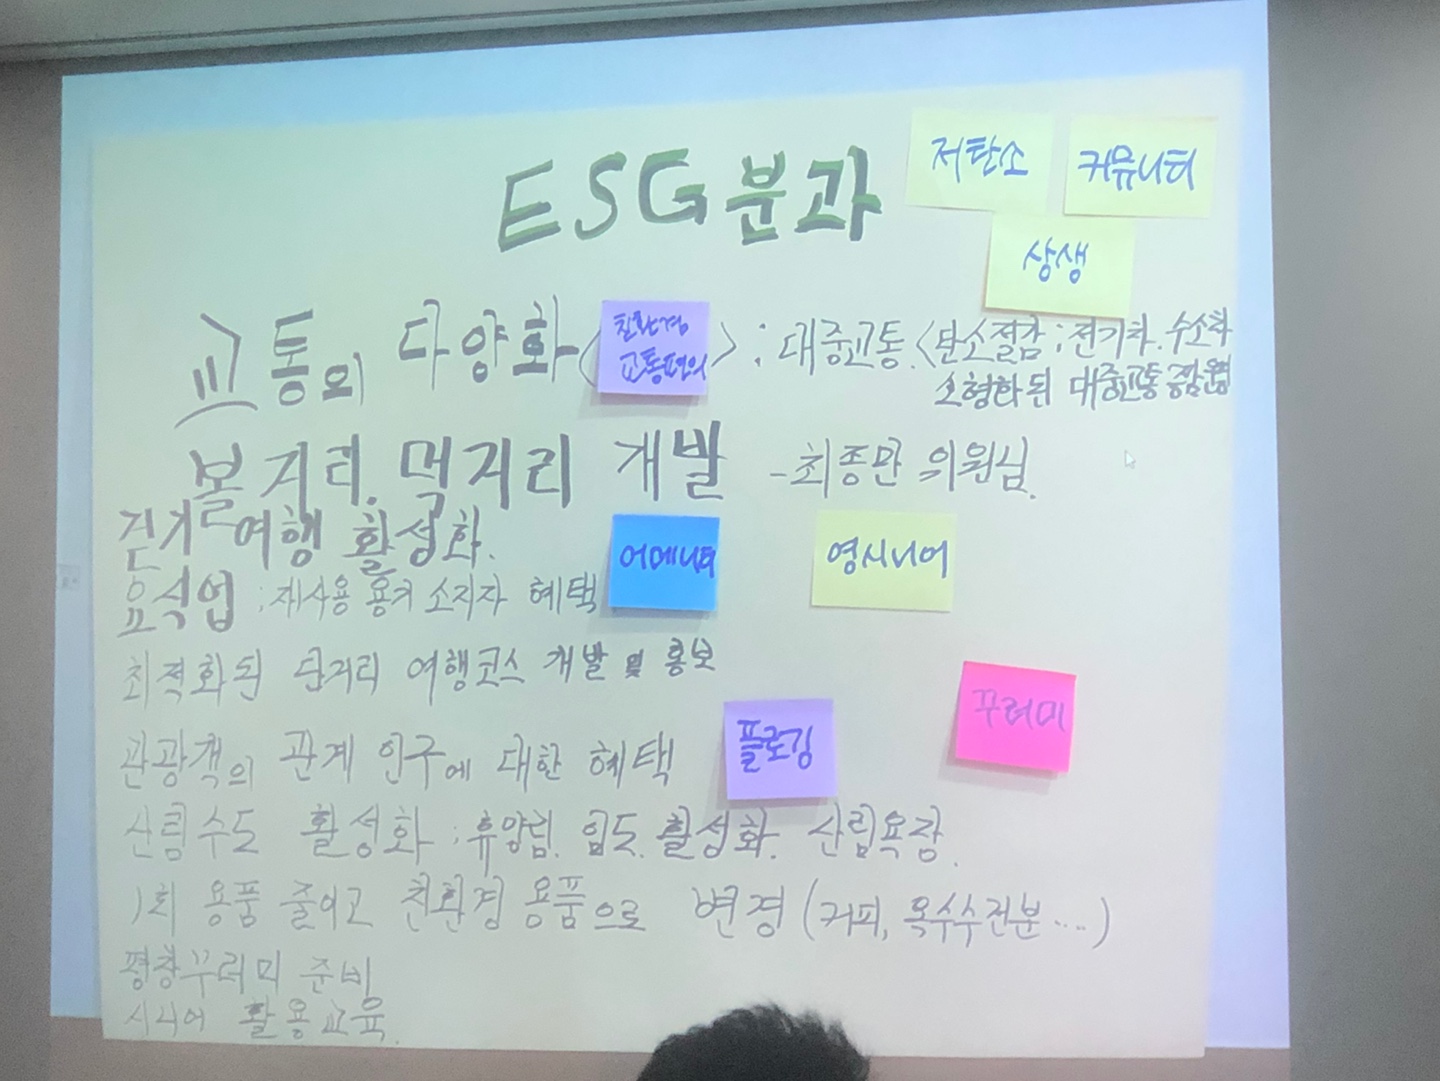 ESG분과
저탄소
커뮤니티
상생
교통의 다양화 <친환경 교통편의> : 대중교통. <탄소절감 : 전기차. 수소차
소형화 된 대중교통
볼거리. 먹거리 개발 - 최종만 의원님.
걷기 여행 활성화.
어메니티
영시니어
음식업 : 재사용 용기 소지자 혜택
최적화된 단거리 여행코스 개발 및 홍보
꾸러미
관광객의 관계 인구에 대한 혜택
플로깅
산림수도 활성화 : 휴양림. 임도. 활성화. 산림욕장.
1회 용품 줄이고 친환경 용품으로 변경 (커피, 옥수수전분 ....)
평창꾸러미 준비
시니어 활용교육.